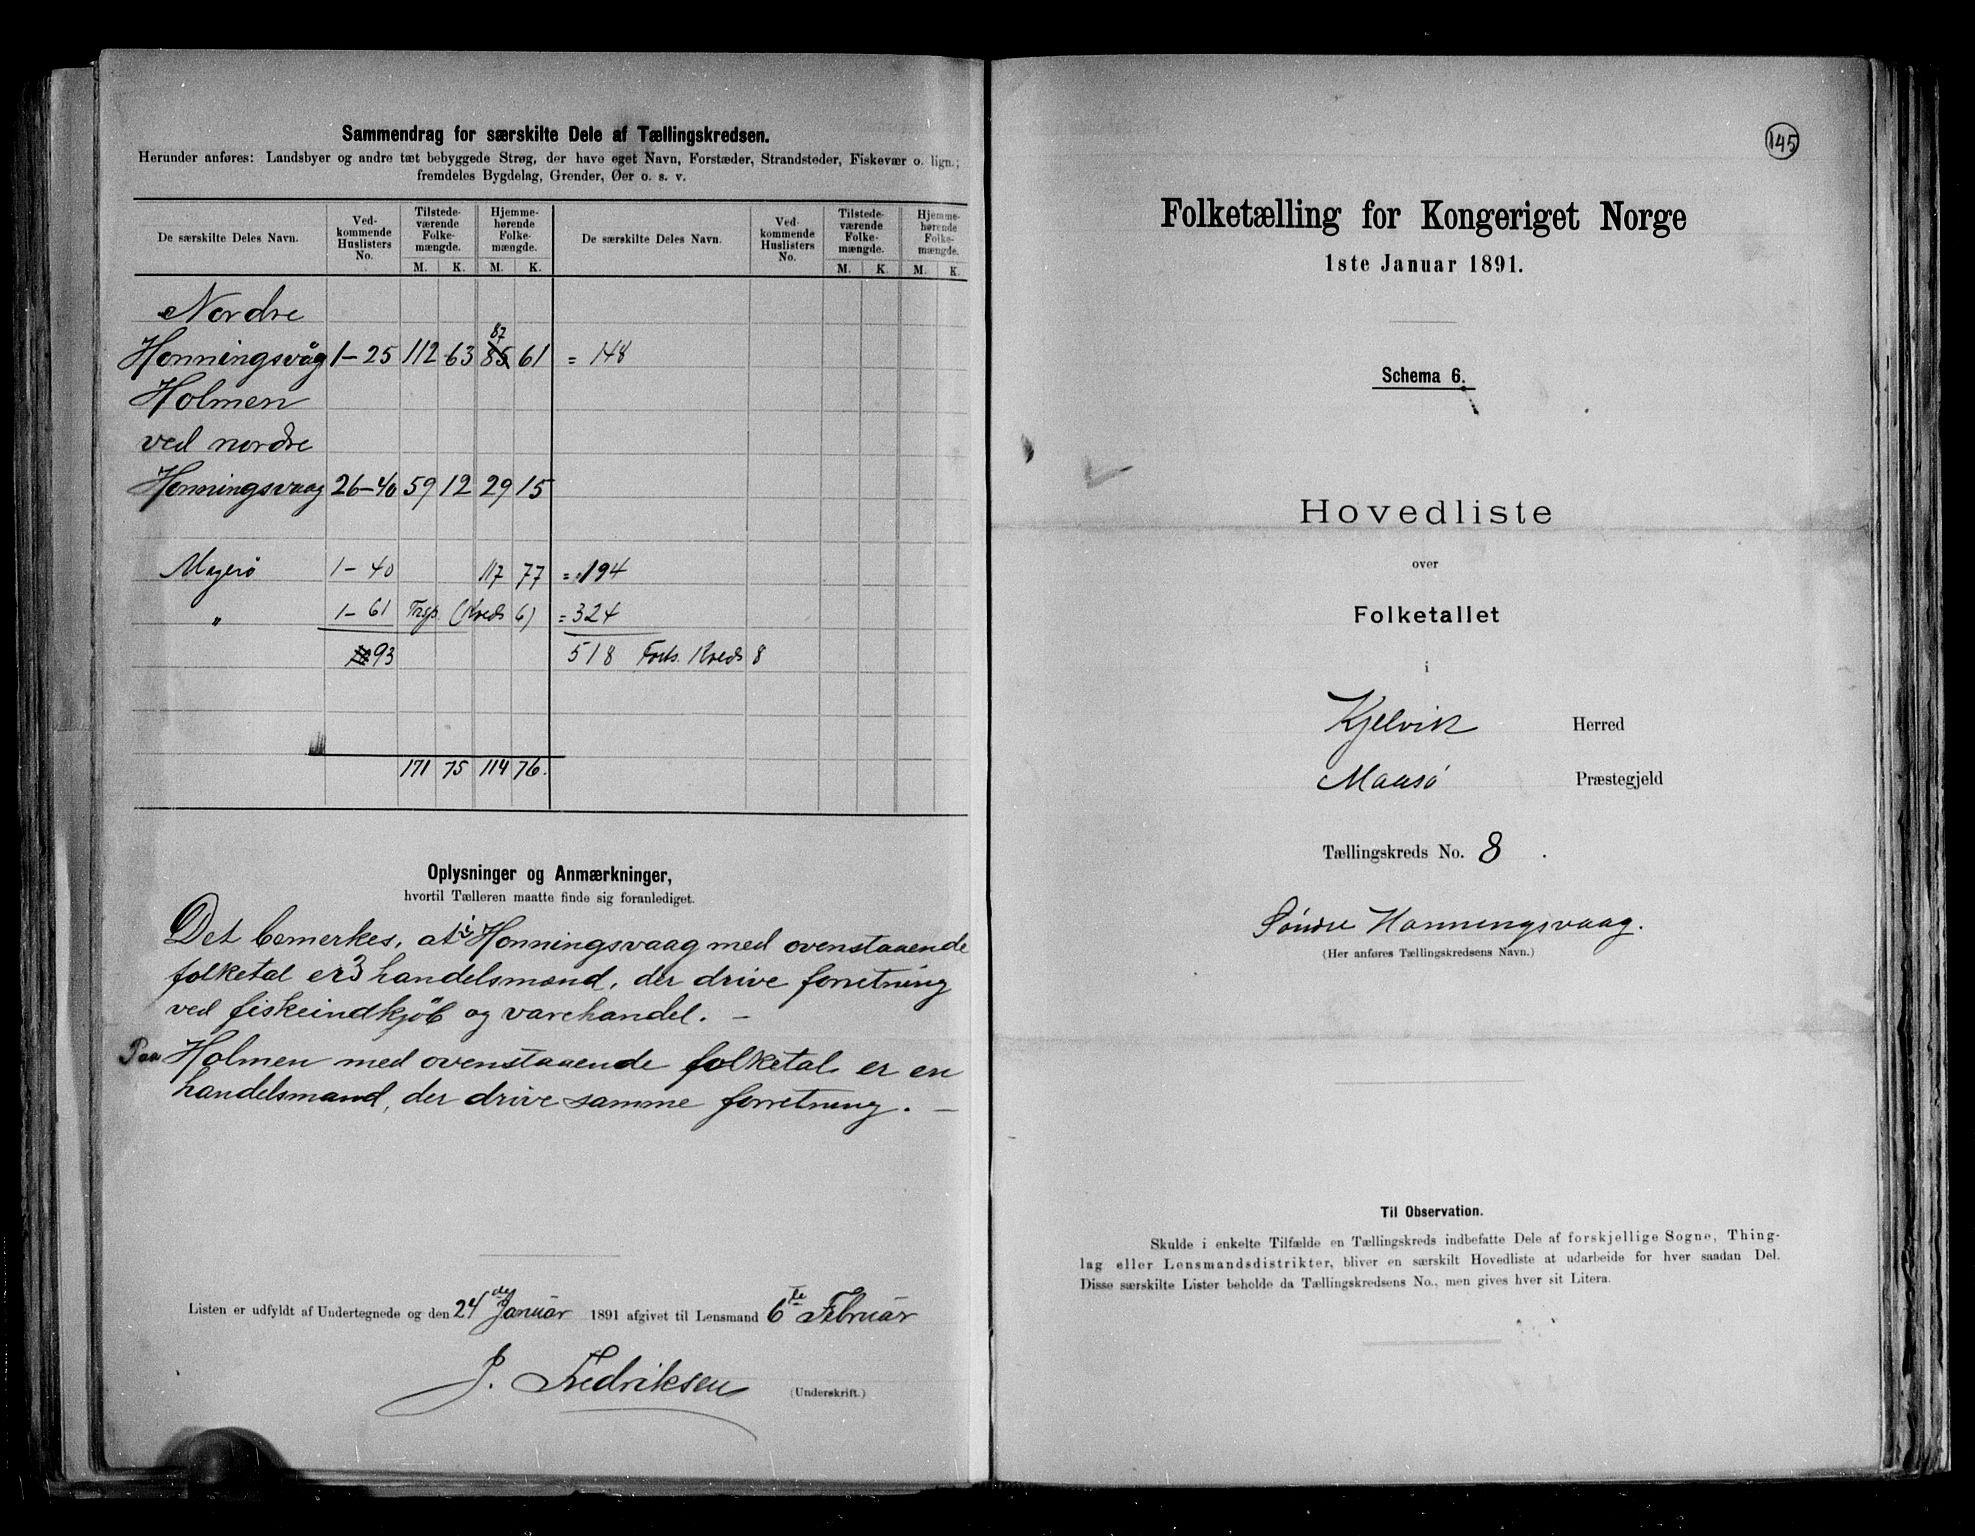 Sammendrag for særskilte Dele af Tællingskredsen.
Herunder anføres: Landsbyer og andre tæt bebyggede Strøg, der have eget Navn, Forstæder, Strandsteder, Fiskevær o. lign.;
fremdeles Bygdelag, Grender, Øer o. s. v.
De særskilte Deles Navn. Ved-kommende Huslisters No. Tilstede-værende Folke-mængde. Hjemme-hørende Folke-mængde. De særskilte Deles Navn. Ved-kommende Huslisters No. Tilstede-værende Folke-mængde. Hjemme-hørende Folke-mængde.
M. K. M. K. M. K. M. K.
Nordre
87
Honningsvåg 1-25 112 63 85 61 = 148
Holmen
ved nordre
Honningsvaag 26-40 59 12 29 15
Magerø 1-40 117 77 = 194
" 1-61 Trsp. (Kreds 6) = 324
93 518 Forts. Kreds 8
171 75 114 76.
Oplysninger og Anmærkninger,
hvortil Tælleren maatte finde sig foranlediget.
Det bemerkes, at i Honningsvaag med ovenstaaende
folketal er 3 handelsmænd, der drive forretning
ved fiskeindkjöb og varehandel. —
Paa Holmen med ovenstaaende folketal er en
handelsmand, der drive samme forretning. —
Listen er udfyldt af Undertegnede og den 24de Januar 1891 afgivet til Lensmand 6te Februar
J. Fedriksen
(Underskrift.)
145
Folketælling for Kongeriget Norge
1ste Januar 1891.
Schema 6.
Hovedliste
over
Folketallet
i
Kjelvik Herred
Maasø Præstegjeld
Tællingskreds No. 8.
Søndre Honningsvaag.
(Her anføres Tællingskredsens Navn.)
Til Observation.
Skulde i enkelte Tilfælde en Tællingskreds indbefatte Dele af forskjellige Sogne, Thing-
lag eller Lensmandsdistrikter, bliver en særskilt Hovedliste at udarbeide for hver saadan Del.
Disse særskilte Lister beholde da Tællingskredsens No., men gives hver sit Litera.